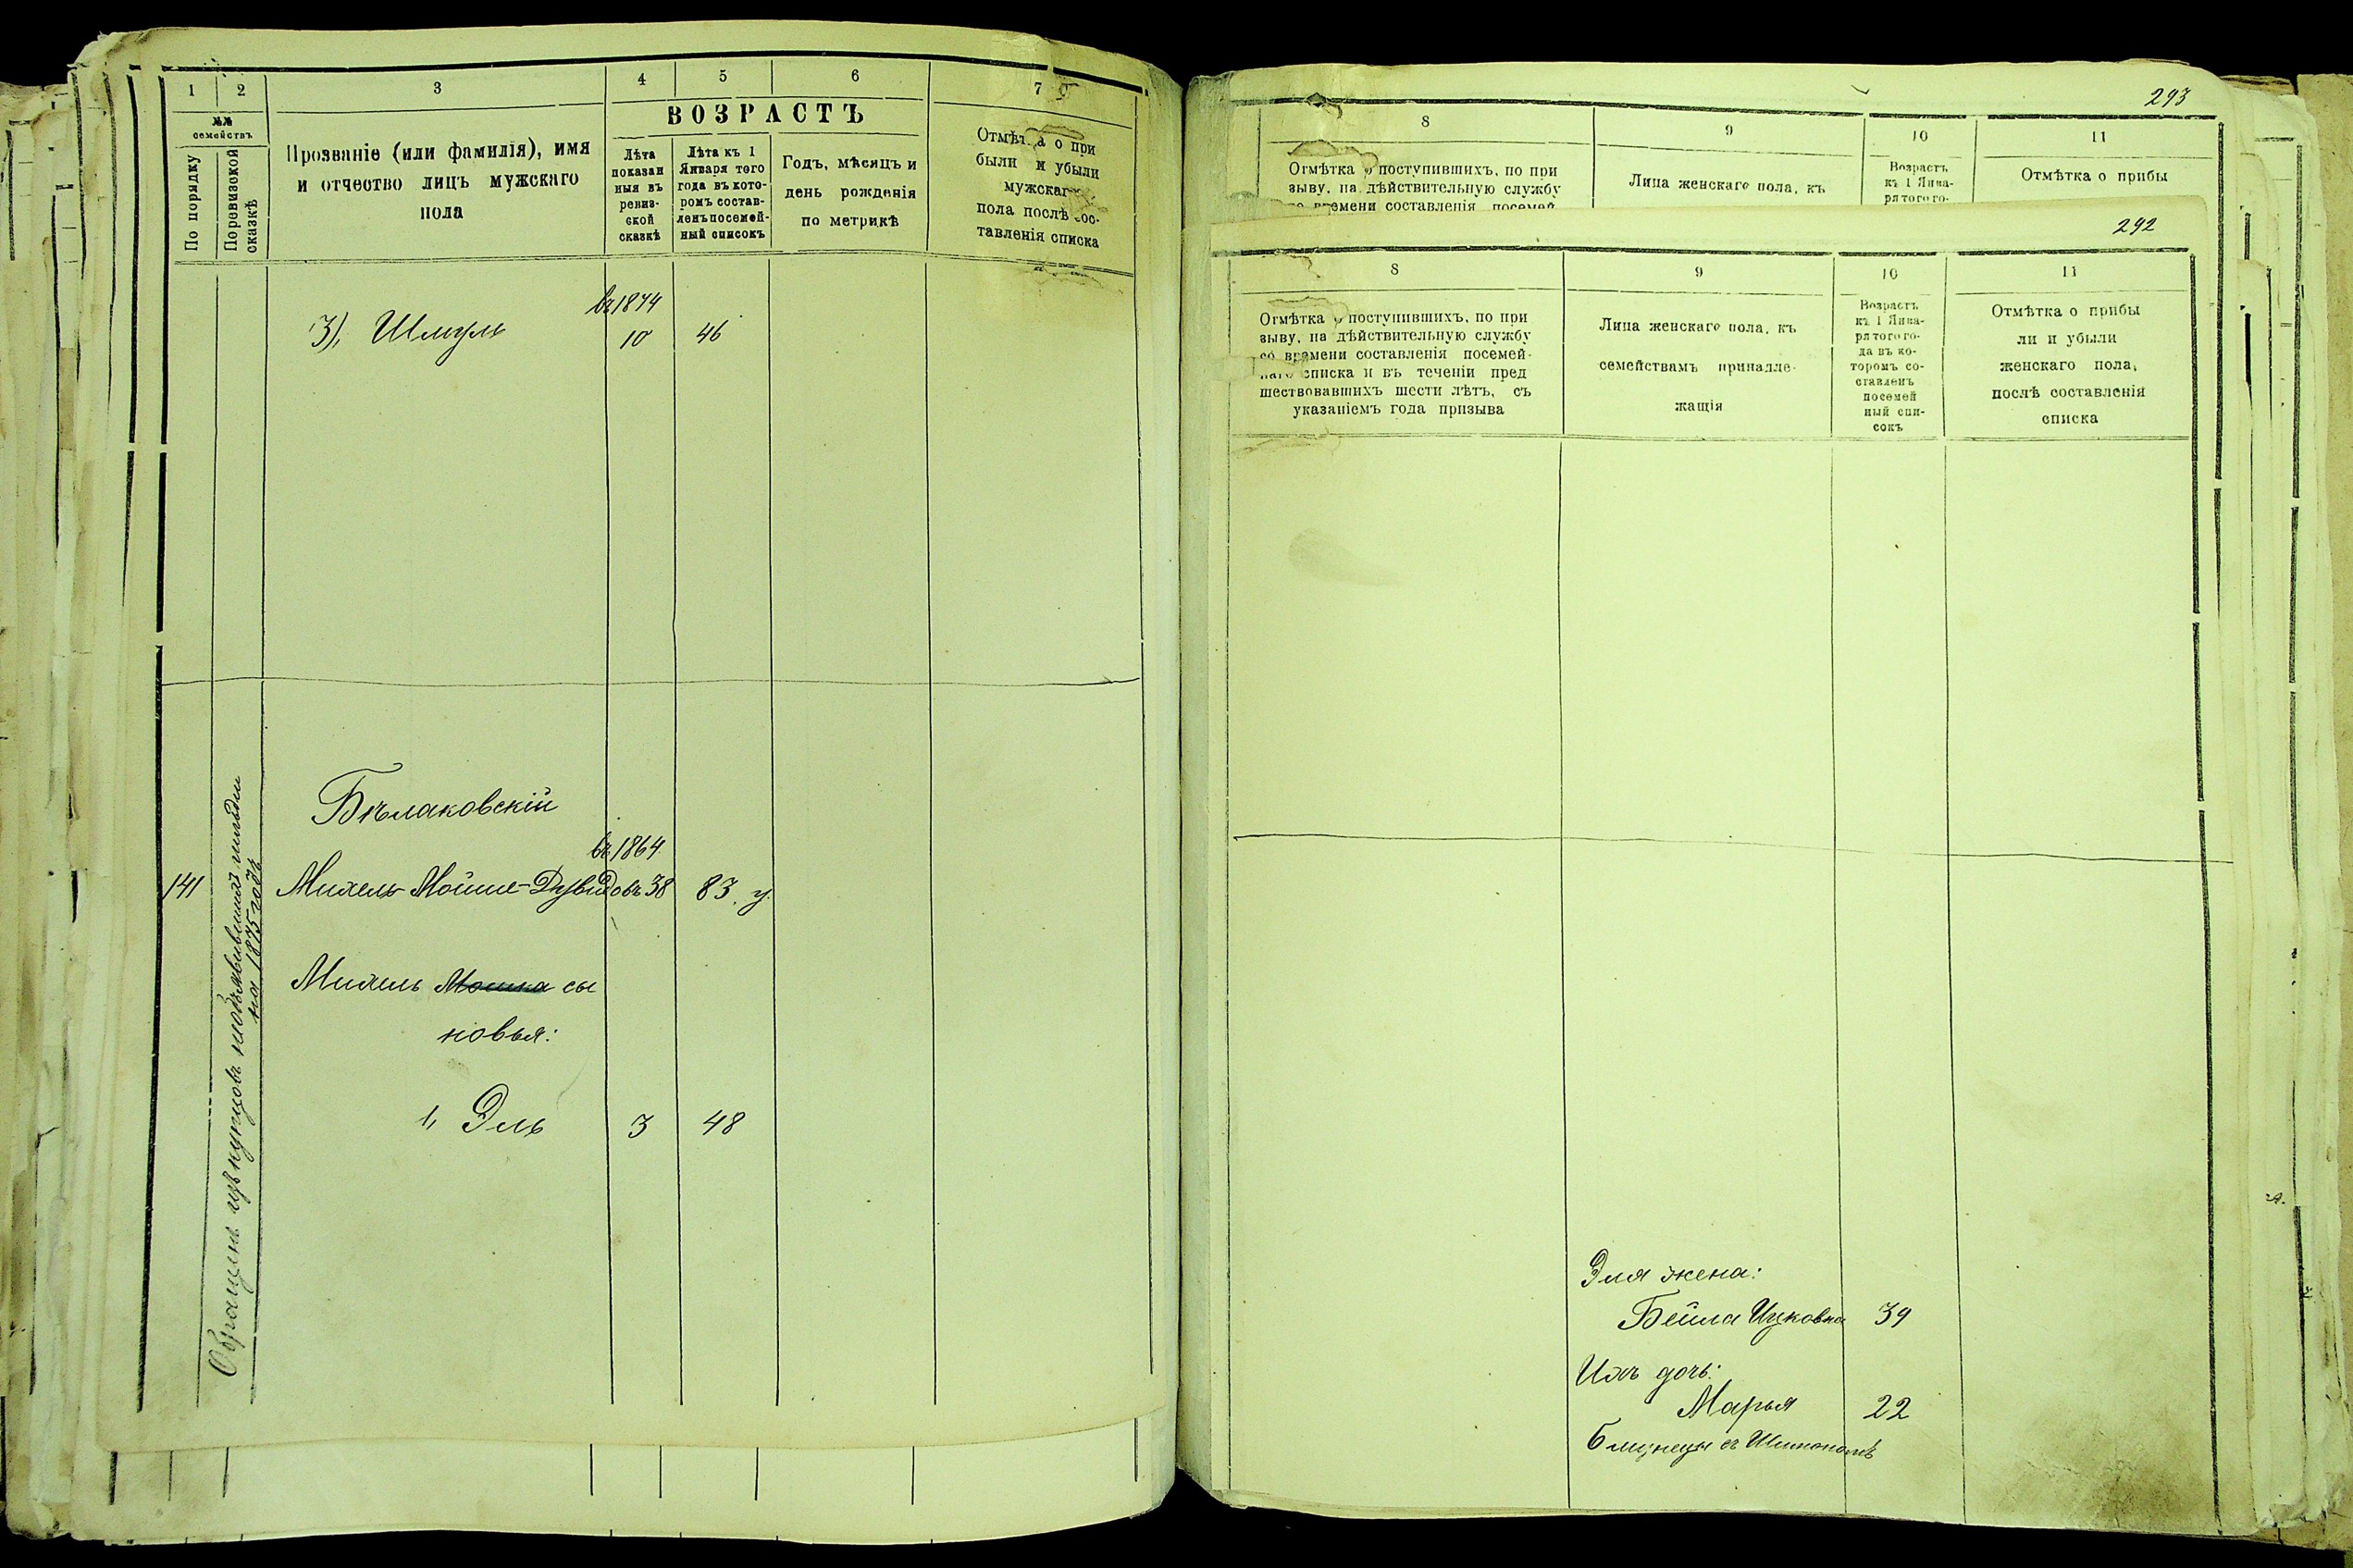 1 2 3 4 5 6 7
№№ семействъ
По порядку
Поревизской сказкѣ
Прозваніе (или фамилія), имя
и отчество лицъ мужскаго
пола
ВОЗРАСТЪ
Лѣта
показан
ныя въ
ревиз-
ской
сказкѣ
Лѣта къ 1
Января того
года въ кото-
ромъ состав-
ленъ посемей-
ный списокъ
Годъ, мѣсяцъ и
день рожденія
по метрикѣ
о при
были и убыли
мужскаго
пола послѣ сос-
тавленія списка
въ 1874
3), Шмуль 10 46
Бѣлаковскій
въ 1864
141 Михель Мойше-Дувидовъ 38 83. у.
Обращенъ изъ купцовъ необъявившихъ гильдіи
на 1875 годъ
Михель Мошка сы
новья:
1, Эль 3 48
293
8 9 10 11
Отмѣтка о поступившихъ, по при
зыву, на дѣйствительную службу
времени составленія посемей
Лица женскаго пола, къ
Возрастъ
къ 1 Янва-
ря того го-
Отмѣтка о прибы
292
8 9 10 11
Отмѣтка о поступившихъ, по при
зыву, на дѣйствительную службу
со времени составленія посемей-
наго списка и въ теченіи пред
шествовавшихъ шести лѣтъ, съ
указаніемъ года призыва
Лица женскаго пола, къ
семействамъ принадле-
жащія
Возрастъ
къ 1 Янва-
ря того го-
да въ ко-
торомъ со-
ставленъ
посемей
ный спи-
сокъ
Отмѣтка о прибы
ли и убыли
женскаго пола,
послѣ составленія
списка
Эля жена:
Бейла Ицковна 39
Ихъ дочь:
Марья 22
близнецы съ Шимономъ